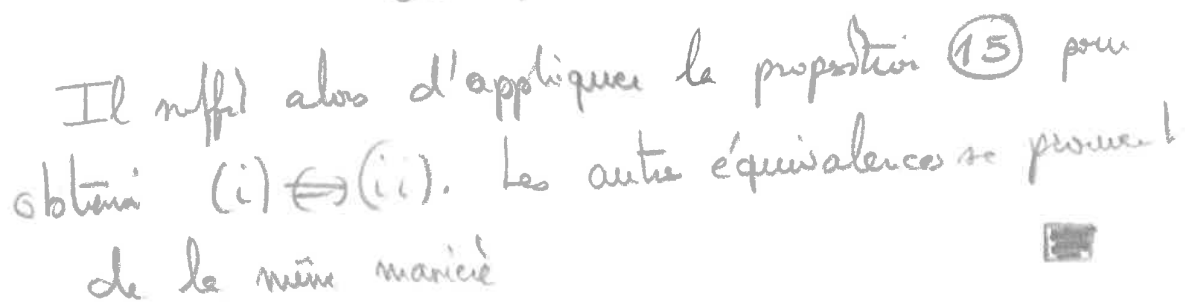 Il suffit alors d'appliquer la proposition (15) pour
obtenir (i) ⟺ (ii). Les autre équivalences se prouvent
de la même manière